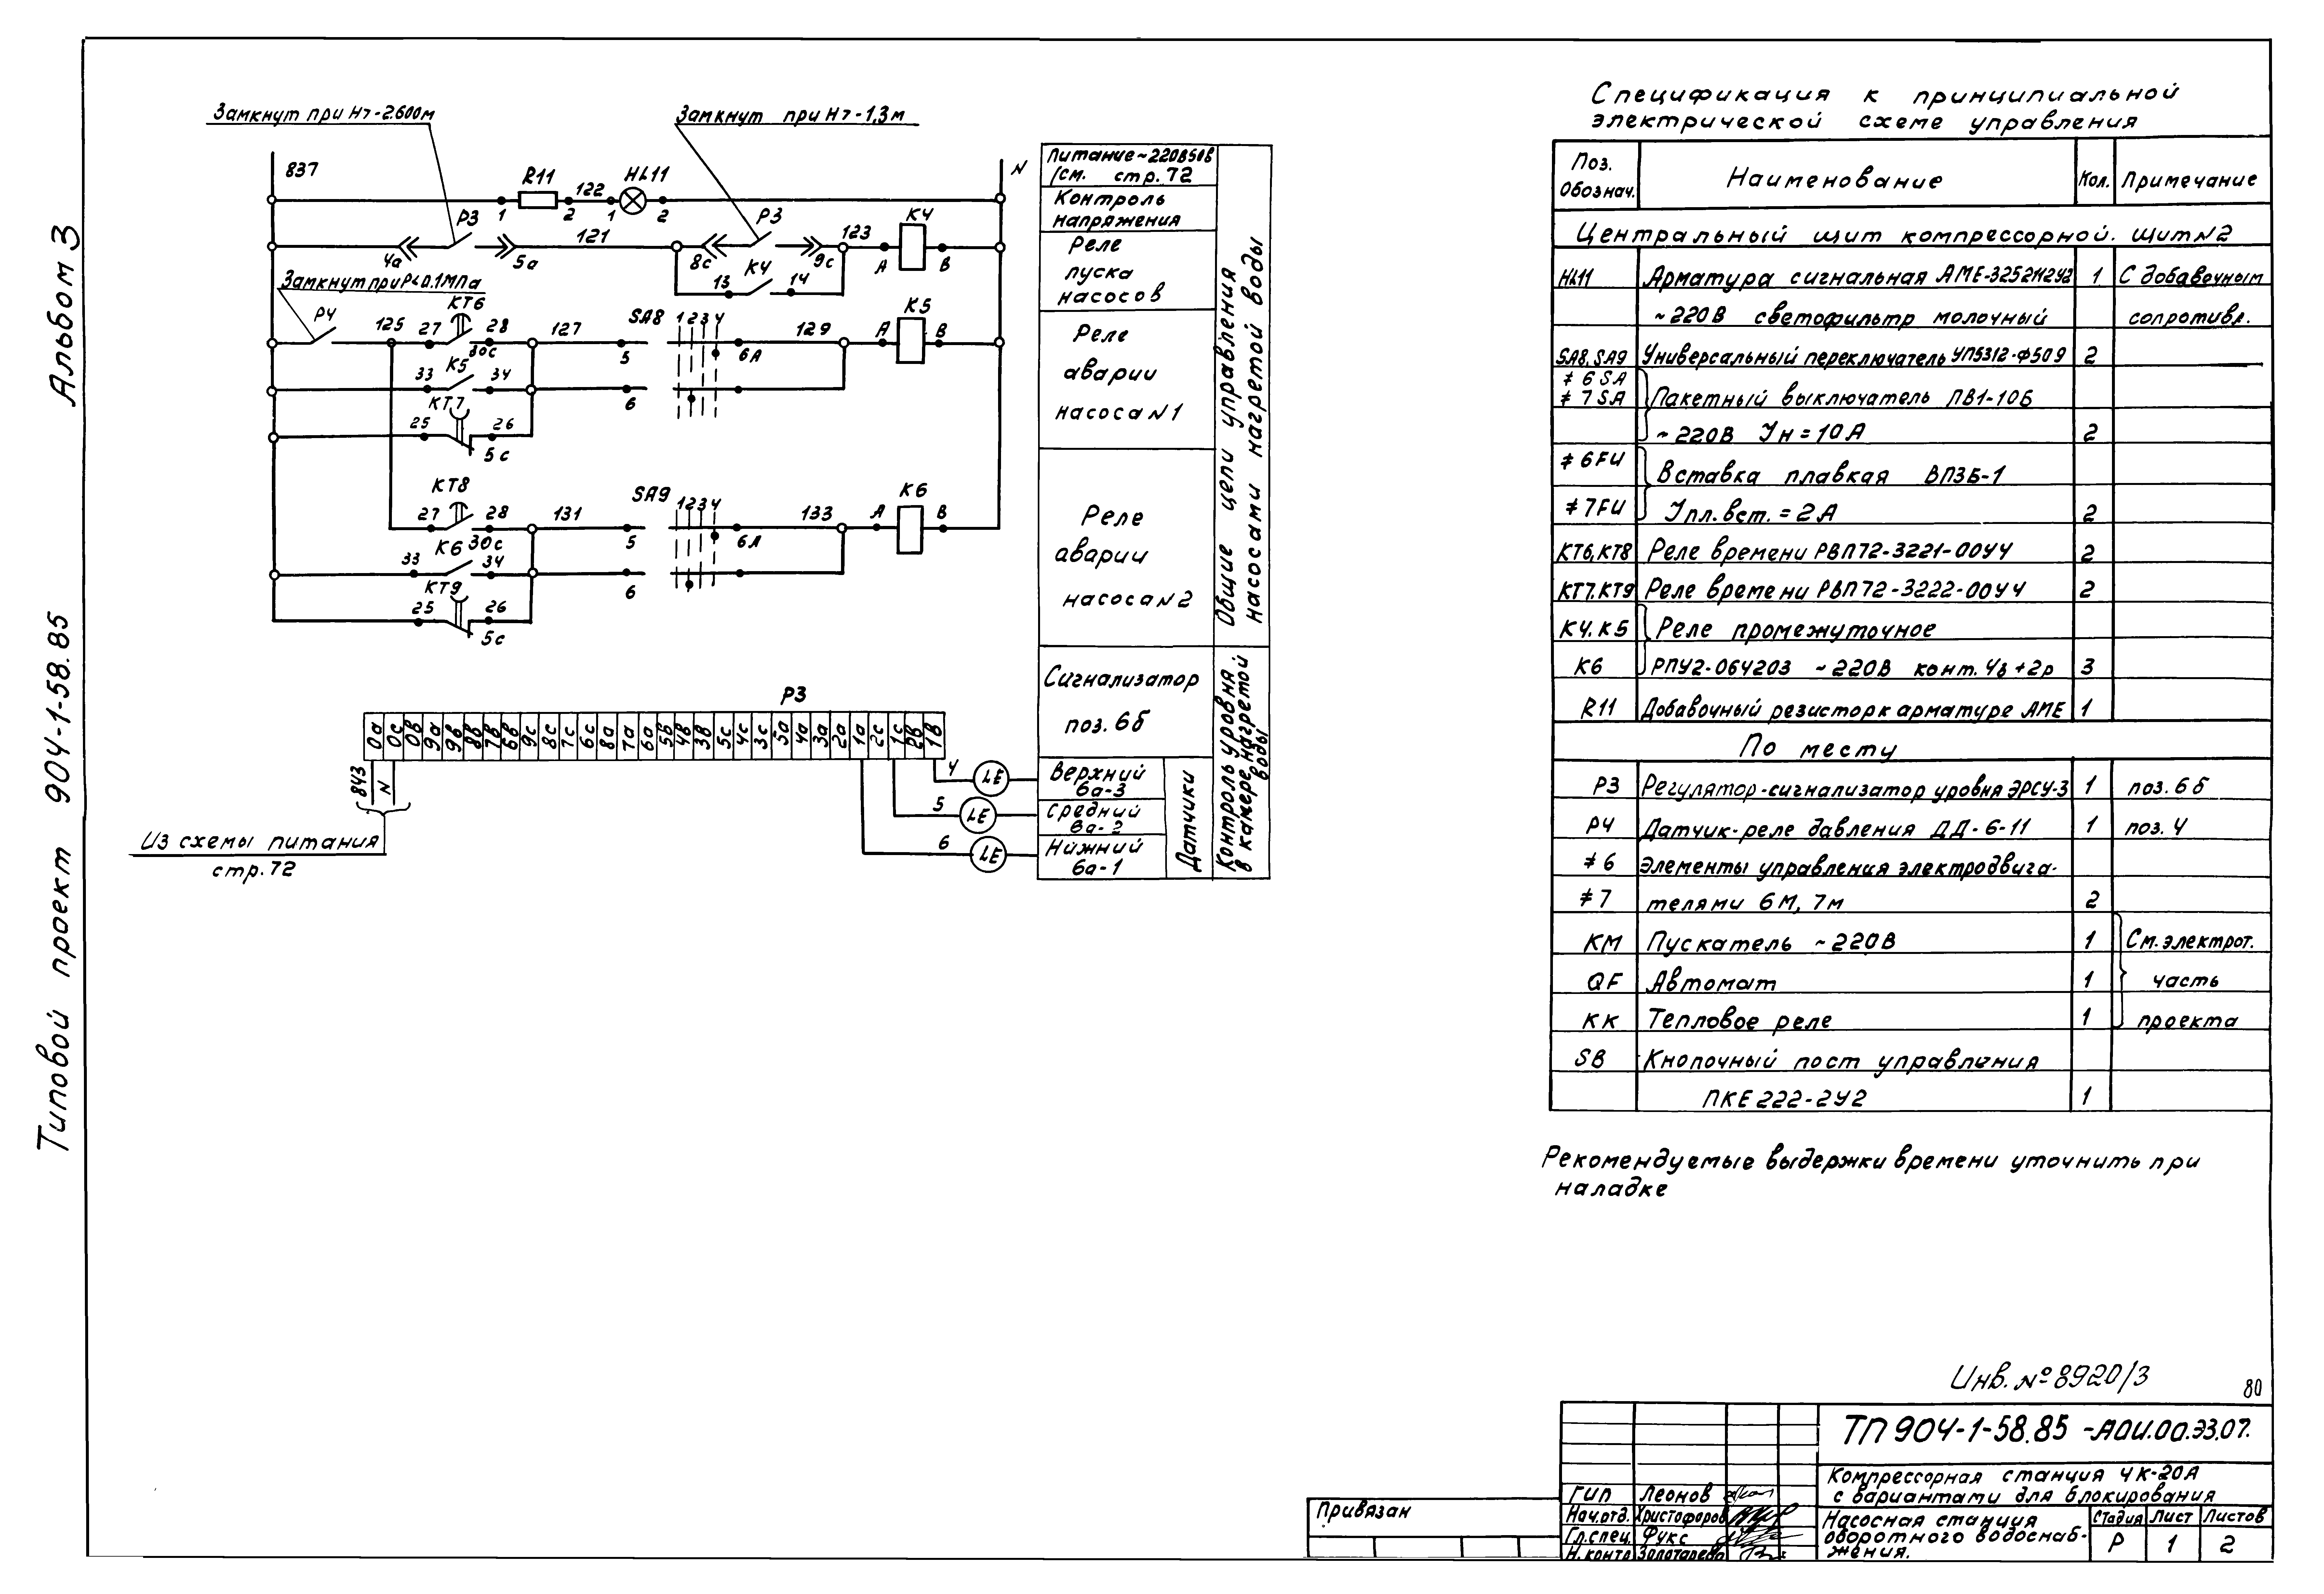 Альбом 3
Типовой проект 904-1-58.85
Замкнут при Н>-2.600м
Замкнут при Н>-1,3м
837
N
R11
122
HL11
1
2
1
2
P3
121
P3
123
K4
4а
5а
8с
9с
A
B
13
K4
14
Замкнут при Р<0.1МПа
P4
125
27
KT6
28
30с
127
SA8
1 2 3 4
129
K5
5
6А
A
B
33
K5
34
6
KT7
25
26
5с
KT8
27
28
30с
131
SA9
1 2 3 4
133
K6
5
6А
A
B
33
K6
34
6
KT9
25
26
5с
Питание ~220В50В
/см. стр. 72
Контроль
напряжения
Реле
пуска
насосов
Реле
аварии
насоса N1
Реле
аварии
насоса N2
Общие цепи управления
насосами нагретой воды
Сигнализатор
поз. 6б
Контроль уровня
в камере нагретой
воды
Верхний
6а-3
Средний
6а-2
Нижний
6а-1
Датчики
P3
0а 0с 0в 9а 9в 8в 7в 6в 9с 8с 7с 6с 8а 7а 6а 5в 4в 3в 5с 4с 3с 5а 4а 3а 2а 1а 2с 1с 2в 1в
843
N
4
LE
5
LE
6
LE
Из схемы питания
стр. 72
Спецификация к принципиальной
электрической схеме управления
Поз. Обознач. Наименование Кол. Примечание
Центральный щит компрессорной. Щит N2
HL11 Арматура сигнальная АМЕ-325211242 1 С добавочным
~220В светофильтр молочный сопротивл.
SA8, SA9 Универсальный переключатель УП5312-Ф509 2
≠ 6 SA
≠ 7 SA Пакетный выключатель ПВ1-10Б
~220В Iн=10А 2
≠ 6FU Вставка плавкая ВПЗБ-1
≠ 7FU Iпл.вст.=2А 2
KT6, KT8 Реле времени РВП72-3221-00У4 2
KT7, KT9 Реле времени РВП72-3222-00У4 2
K4, K5 Реле промежуточное
K6 РПУ2-064203 ~220В конт. 4в+2р 3
R11 Добавочный резистор к арматуре АМЕ 1
По месту
P3 Регулятор-сигнализатор уровня ЭРСУ-3 1 поз. 6б
P4 Датчик-реле давления ДД-6-11 1 поз. 4
≠ 6 Элементы управления электродвига-
≠ 7 телями 6М, 7м 2
KM Пускатель ~220В 1 См. электрот.
QF Автомат 1 часть
KK Тепловое реле 1 проекта
SB Кнопочный пост управления
ПКЕ 222-2У2 1
Рекомендуемые выдержки времени уточнить при
наладке
Инв. № 8920/3
80
ТП 904-1-58.85 -АОИ.00.ЭЗ.07.
Компрессорная станция 4К-20А
с вариантами для блокирования
Насосная станция
оборотного водоснаб-
жения.
Стадия Лист Листов
Р 1 2
ГИП Леонов
Нач.отд. Христофоров
Гл.спец. Фукс
Н.контр Золотарева
Привязан